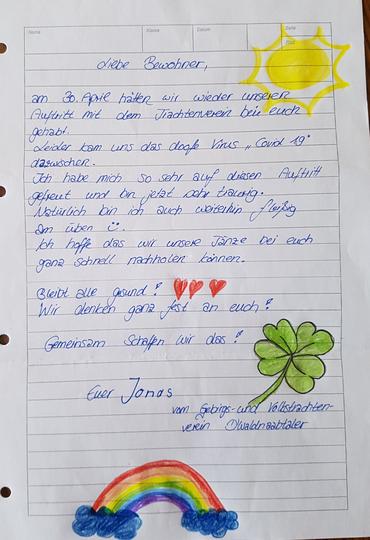 Name Klasse Datum Seite
Liebe Bewohner,
am 30. April hätten wir wieder unseren
Auftritt mit dem Trachtenverein bei euch
gehabt.
Leider kam uns das doofe Virus „Covid 19"
dazwischen.
Ich habe mich so sehr auf diesen Auftritt
gefreut und bin jetzt sehr traurig.
Natürlich bin ich auch weiterhin fleißig
am üben
Ich hoffe das wir unsere Tänze bei euch
ganz schnell nachholen können.
Bleibt alle gesund!
Wir denken ganz fest an euch!
Gemeinsam Schaffen wir das!
Euer Jonas
vom Gebirgs- und Volkstrachten-
verein D'Waldnaabtaler